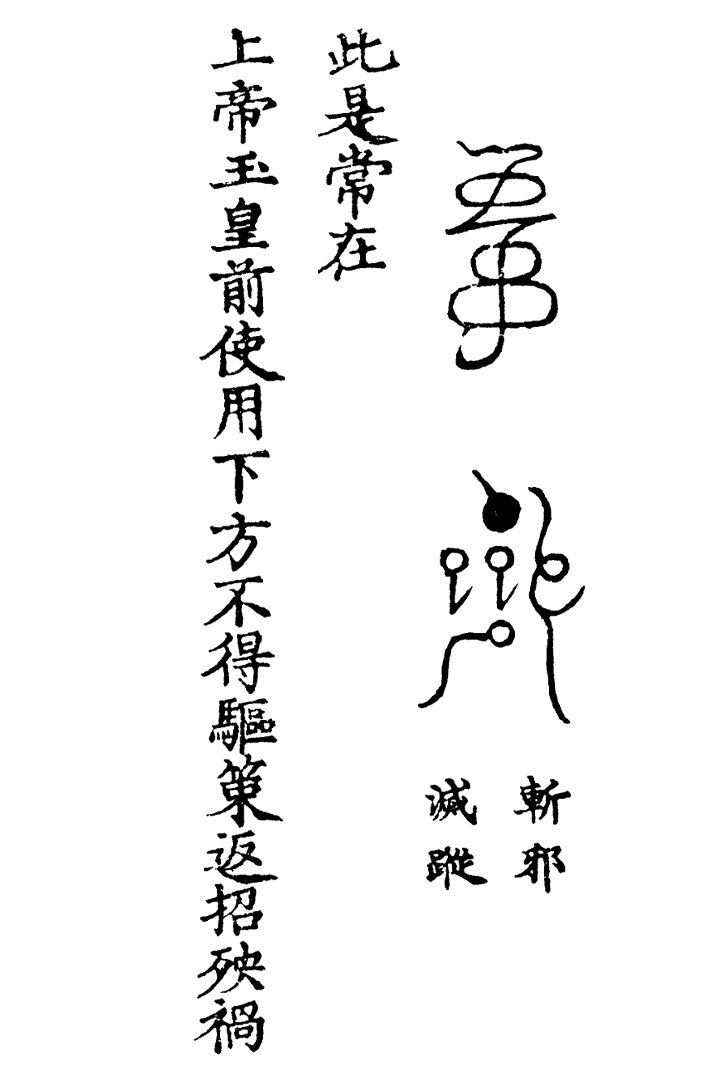 斬邪
滅蹤
此是常在
上帝玉皇前使用下方不得驅策返招殃禍